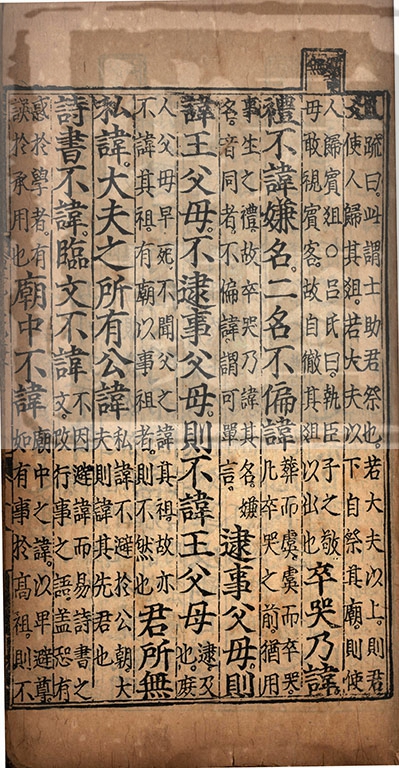 俎疏曰。此謂士助君祭也。若大夫以上。則君
使人歸其俎。若大夫以下自祭其廟。則使
人歸賓俎○呂氏曰。執臣子之敬。
毋敢視賓客。故自徹其俎以出也
卒哭乃諱。
禮不諱嫌名。二名不偏諱
葬而虞。虞而卒哭。
凡卒哭之前。猶用
事生之禮。故卒哭乃諱其名。嫌
名。音同者。不偏諱。謂可單言。
逮事父母。則
諱王父母。不逮事父母。則不諱王父母
逮及
也。庶
人父母早死。不聞父之諱其祖。故亦
不諱其祖。有廟以事祖者。則不然也
君所無
私諱。大夫之所有公諱
私諱不避於公朝。大
夫則諱其先君也
詩書不諱。臨文不諱
不因避諱而易詩書之
文。改行事之語。蓋恐有
惑於學者。有
誤於承用也
廟中不諱
廟中之諱。以卑避尊。
如有事於高祖。則不